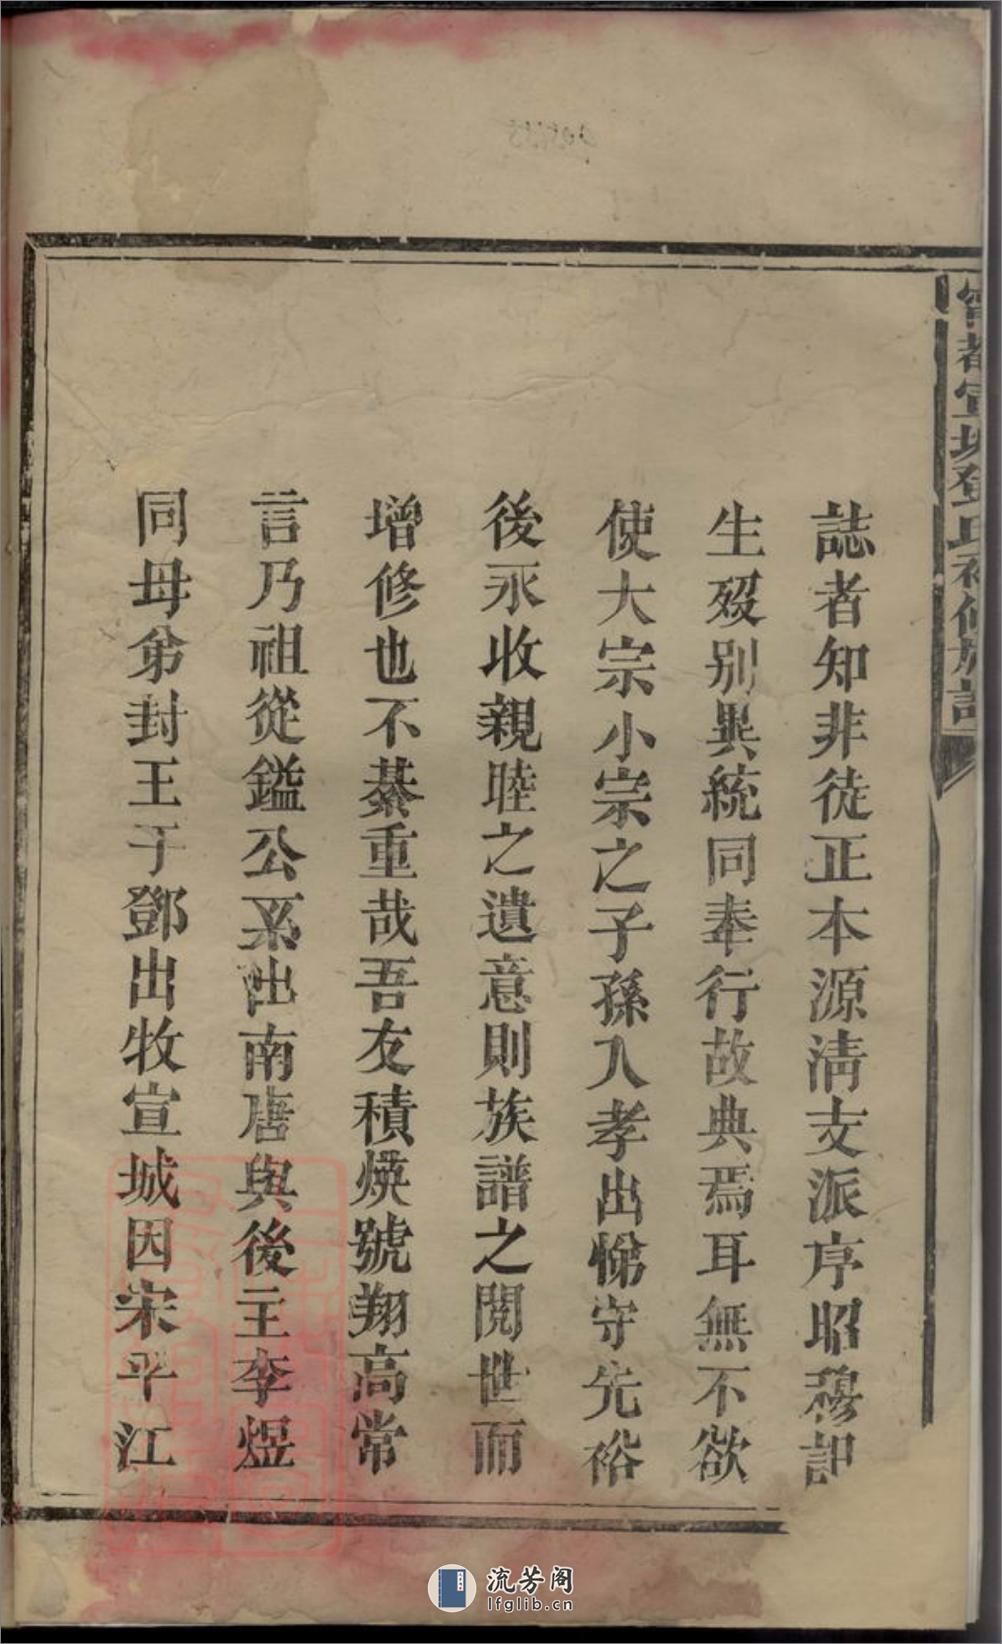 甯都宣城鄧氏補修族譜
誌者知非徒正本源淸支派序昭穆記
生歿別異統同奉行故典焉耳無不欲
使大宗小宗之子孫入孝出悌守先裕
後永收親睦之遺意則族譜之閱世而
增修也不綦重哉吾友積煐號翔高常
言乃祖從鎰公系出南唐與後主李煜
同母弟封王于鄧出牧宣城因宋平江
流芳阁
lfglib.cn